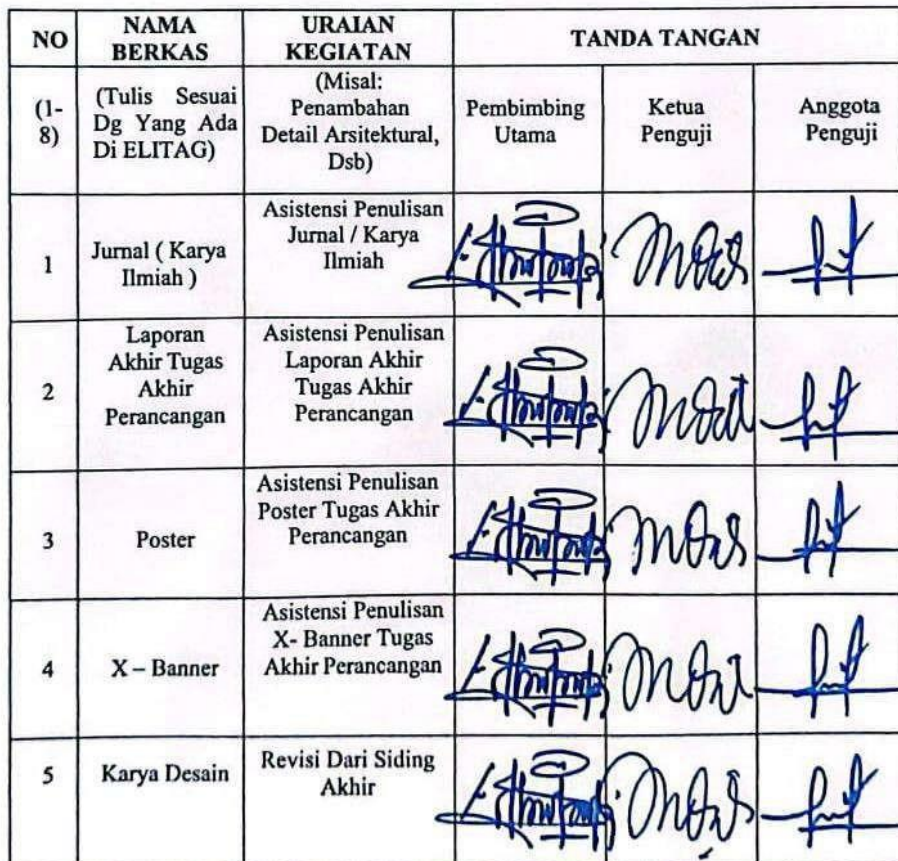 NO
NAMA
BERKAS
URAIAN
KEGIATAN
TANDA TANGAN
(1-
8)
(Tulis Sesuai
Dg Yang Ada
Di ELITAG)
(Misal:
Penambahan
Detail Arsitektural,
Dsb)
Pembimbing
Utama
Ketua
Penguji
Anggota
Penguji
1
Jurnal ( Karya
Ilmiah )
Asistensi Penulisan
Jurnal / Karya
Ilmiah
2
Laporan
Akhir Tugas
Akhir
Perancangan
Asistensi Penulisan
Laporan Akhir
Tugas Akhir
Perancangan
3
Poster
Asistensi Penulisan
Poster Tugas Akhir
Perancangan
4
X – Banner
Asistensi Penulisan
X- Banner Tugas
Akhir Perancangan
5
Karya Desain
Revisi Dari Siding
Akhir